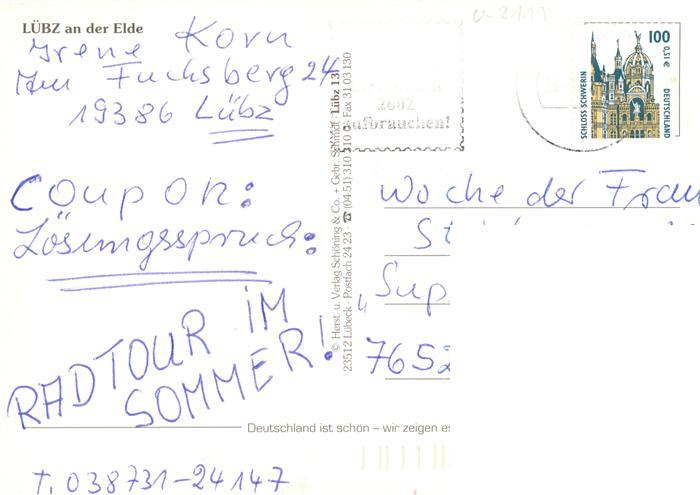 LÜBZ an der Elde
Irene Korn
Am Fuchsberg 24
19386 Lübz
Coupon:
Lösungsspruch:
RADTOUR IM
SOMMER!
T. 038731-24147
© Herst. u. Verlag Schöning & Co. + Gebr. Schmidt · Lübz 13
23512 Lübeck · Postfach 24 23 · ☎ (04 51) 310 310 · Fax 31 03 130
2002
aufbrauchen!
0-2111
100
0,51 €
SCHLOSS SCHWERIN
DEUTSCHLAND
Woche der Frau
„Sup
7652
Deutschland ist schön – wir zeigen es